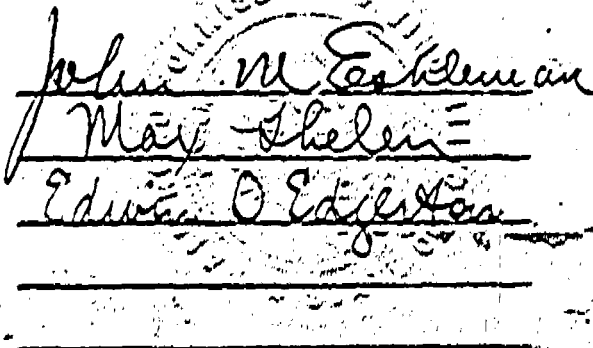 John M Eshleman
Max Thelen
Edwin O Edgerton